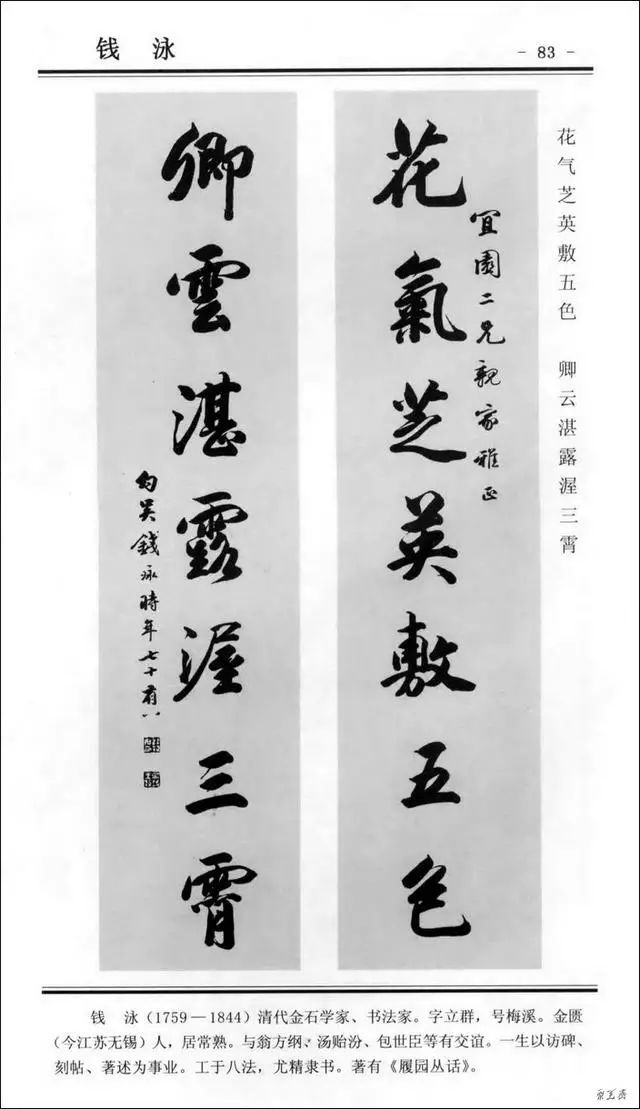 钱 泳
- 83 -
花气芝英敷五色 卿云湛露渥三霄
花氣芝英敷五色
宜園二兄親家雅正
卿雲湛露渥三霄
勾吴錢泳時年七十有八
钱 泳(1759—1844)清代金石学家、书法家。字立群,号梅溪。金匮
(今江苏无锡)人,居常熟。与翁方纲、汤贻汾、包世臣等有交谊。一生以访碑、
刻帖、著述为事业。工于八法,尤精隶书。著有《履园丛话》。